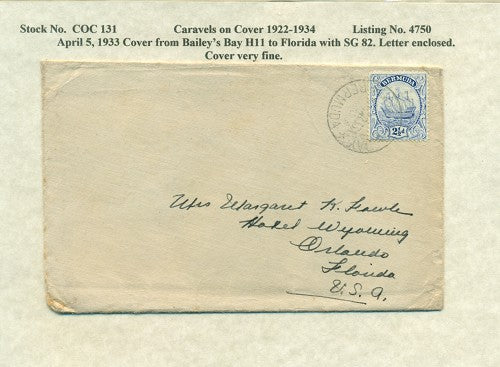 Stock No. COC 131 Caravels on Cover 1922-1934 Listing No. 4750
April 5, 1933 Cover from Bailey's Bay H11 to Florida with SG 82. Letter enclosed.
Cover very fine.
BERMUDA
2½d
BERMUDA
Mrs Margaret K. Fowle
Hotel Wyoming
Orlando
Florida
U.S.A.